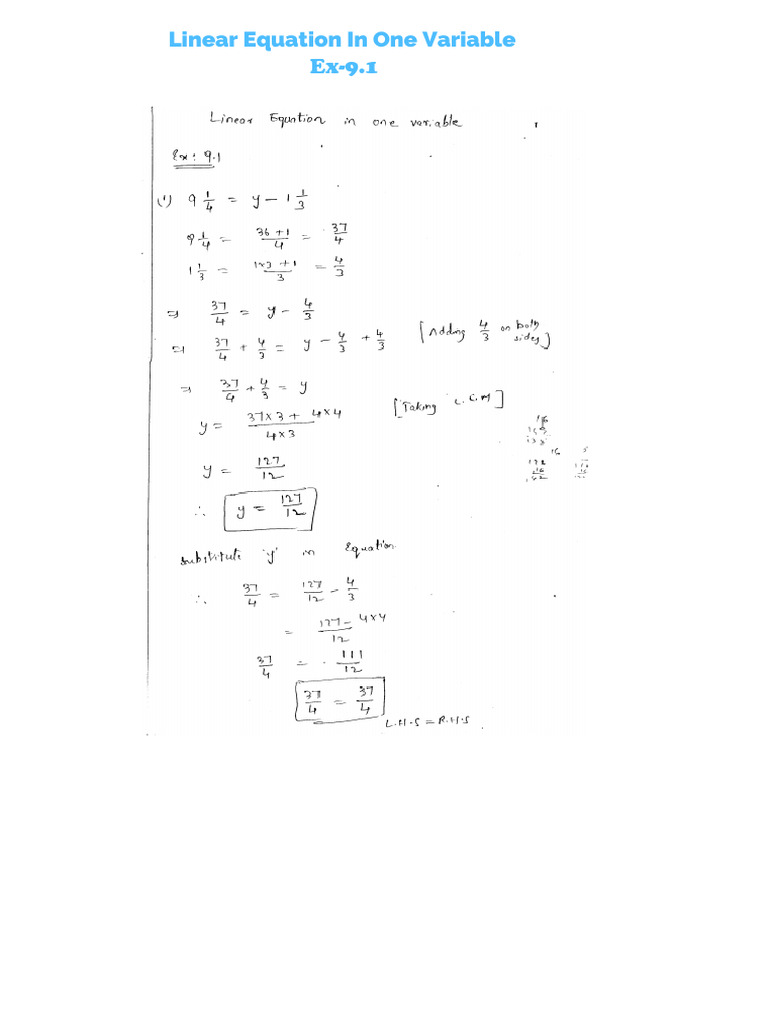 Linear Equation In One Variable
Ex-9.1
Linear Equation in one variable
Ex: 9.1
(1) 9 1/4 = y - 1 1/3
9 1/4 = 36+1/4 = 37/4
1 1/3 = 1×3+1/3 = 4/3
⇒ 37/4 = y - 4/3
⇒ 37/4 + 4/3 = y - 4/3 + 4/3 [Adding 4/3 on both sides]
⇒ 37/4 + 4/3 = y
y = 37×3 + 4×4/4×3 [Taking L.C.M]
y = 127/12
∴ y = 127/12
substitute 'y' in Equation.
∴ 37/4 = 127/12 - 4/3
= 127 - 4×4/12
37/4 = 111/12
37/4 = 37/4
L.H.S = R.H.S